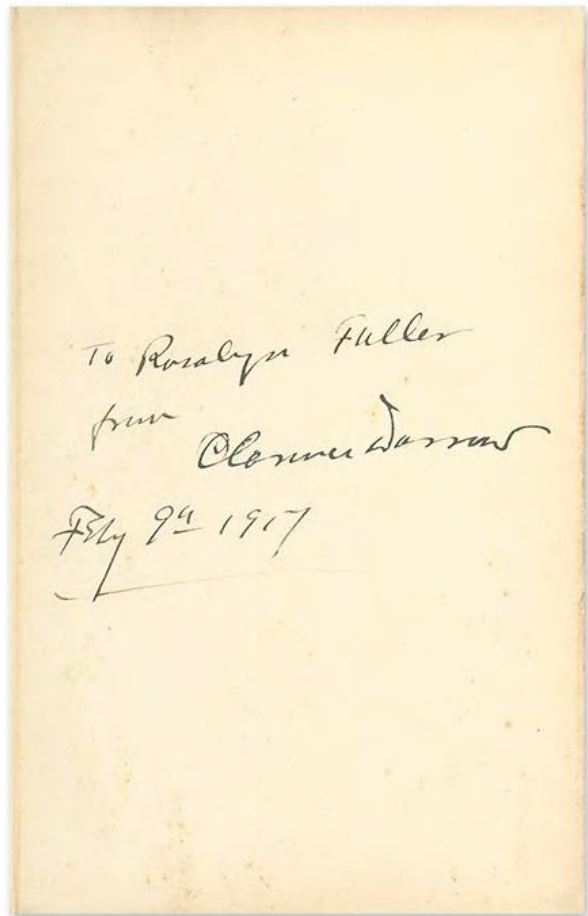 To Rosalyn Fuller
from
Clarence Darrow
Feby 9th 1917